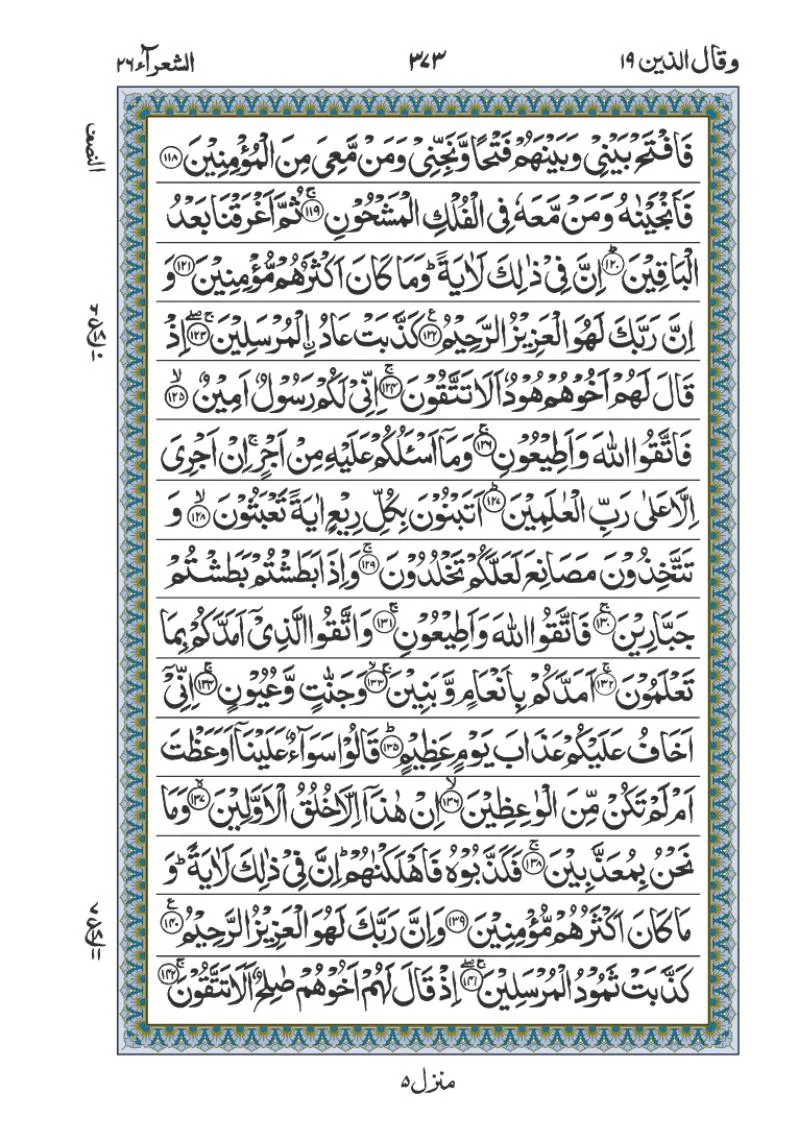 وقال الذين ١٩
٣٧٣
الشعرآء ٢٦
النصف
فَافْتَحْ بَيْنِيْ وَبَيْنَهُمْ فَتْحًا وَّنَجِّنِيْ وَمَنْ مَّعِيَ مِنَ الْمُؤْمِنِيْنَ ۝١١٨
فَاَنْجَيْنٰهُ وَمَنْ مَّعَهٗ فِي الْفُلْكِ الْمَشْحُوْنِ ۝١١٩ۚ ثُمَّ اَغْرَقْنَا بَعْدُ
الْبٰقِيْنَ ۝١٢٠ؕ اِنَّ فِيْ ذٰلِكَ لَاٰيَةً ؕ وَمَا كَانَ اَكْثَرُهُمْ مُّؤْمِنِيْنَ ۝١٢١ وَ
اِنَّ رَبَّكَ لَهُوَ الْعَزِيْزُ الرَّحِيْمُ ۝١٢٢ۧ كَذَّبَتْ عَادُ ۨالْمُرْسَلِيْنَ ۝١٢٣ۚۖ اِذْ
قَالَ لَهُمْ اَخُوْهُمْ هُوْدٌ اَلَا تَتَّقُوْنَ ۝١٢٤ۚ اِنِّيْ لَكُمْ رَسُوْلٌ اَمِيْنٌ ۝١٢٥ۙ
فَاتَّقُوا اللّٰهَ وَاَطِيْعُوْنِ ۝١٢٦ۚ وَمَآ اَسْـَٔلُكُمْ عَلَيْهِ مِنْ اَجْرٍ ۚ اِنْ اَجْرِيَ
اِلَّا عَلٰى رَبِّ الْعٰلَمِيْنَ ۝١٢٧ؕ اَتَبْنُوْنَ بِكُلِّ رِيْعٍ اٰيَةً تَعْبَثُوْنَ ۝١٢٨ۙ وَ
تَتَّخِذُوْنَ مَصَانِعَ لَعَلَّكُمْ تَخْلُدُوْنَ ۝١٢٩ۚ وَاِذَا بَطَشْتُمْ بَطَشْتُمْ
جَبَّارِيْنَ ۝١٣٠ۚ فَاتَّقُوا اللّٰهَ وَاَطِيْعُوْنِ ۝١٣١ۚ وَاتَّقُوا الَّذِيْٓ اَمَدَّكُمْ بِمَا
تَعْلَمُوْنَ ۝١٣٢ۚ اَمَدَّكُمْ بِاَنْعَامٍ وَّبَنِيْنَ ۝١٣٣ۚۙ وَجَنّٰتٍ وَّعُيُوْنٍ ۝١٣٤ۚ اِنِّيْٓ
اَخَافُ عَلَيْكُمْ عَذَابَ يَوْمٍ عَظِيْمٍ ۝١٣٥ؕ قَالُوْا سَوَآءٌ عَلَيْنَآ اَوَعَظْتَ
اَمْ لَمْ تَكُنْ مِّنَ الْوٰعِظِيْنَ ۝١٣٦ۙ اِنْ هٰذَآ اِلَّا خُلُقُ الْاَوَّلِيْنَ ۝١٣٧ۙ وَمَا
نَحْنُ بِمُعَذَّبِيْنَ ۝١٣٨ۚ فَكَذَّبُوْهُ فَاَهْلَكْنٰهُمْ ؕ اِنَّ فِيْ ذٰلِكَ لَاٰيَةً ؕ وَ
مَا كَانَ اَكْثَرُهُمْ مُّؤْمِنِيْنَ ۝١٣٩ وَاِنَّ رَبَّكَ لَهُوَ الْعَزِيْزُ الرَّحِيْمُ ۝١٤٠ۧ
كَذَّبَتْ ثَمُوْدُ الْمُرْسَلِيْنَ ۝١٤١ۚۖ اِذْ قَالَ لَهُمْ اَخُوْهُمْ صٰلِحٌ اَلَا تَتَّقُوْنَ ۝١٤٢ۚ
منزل ٥